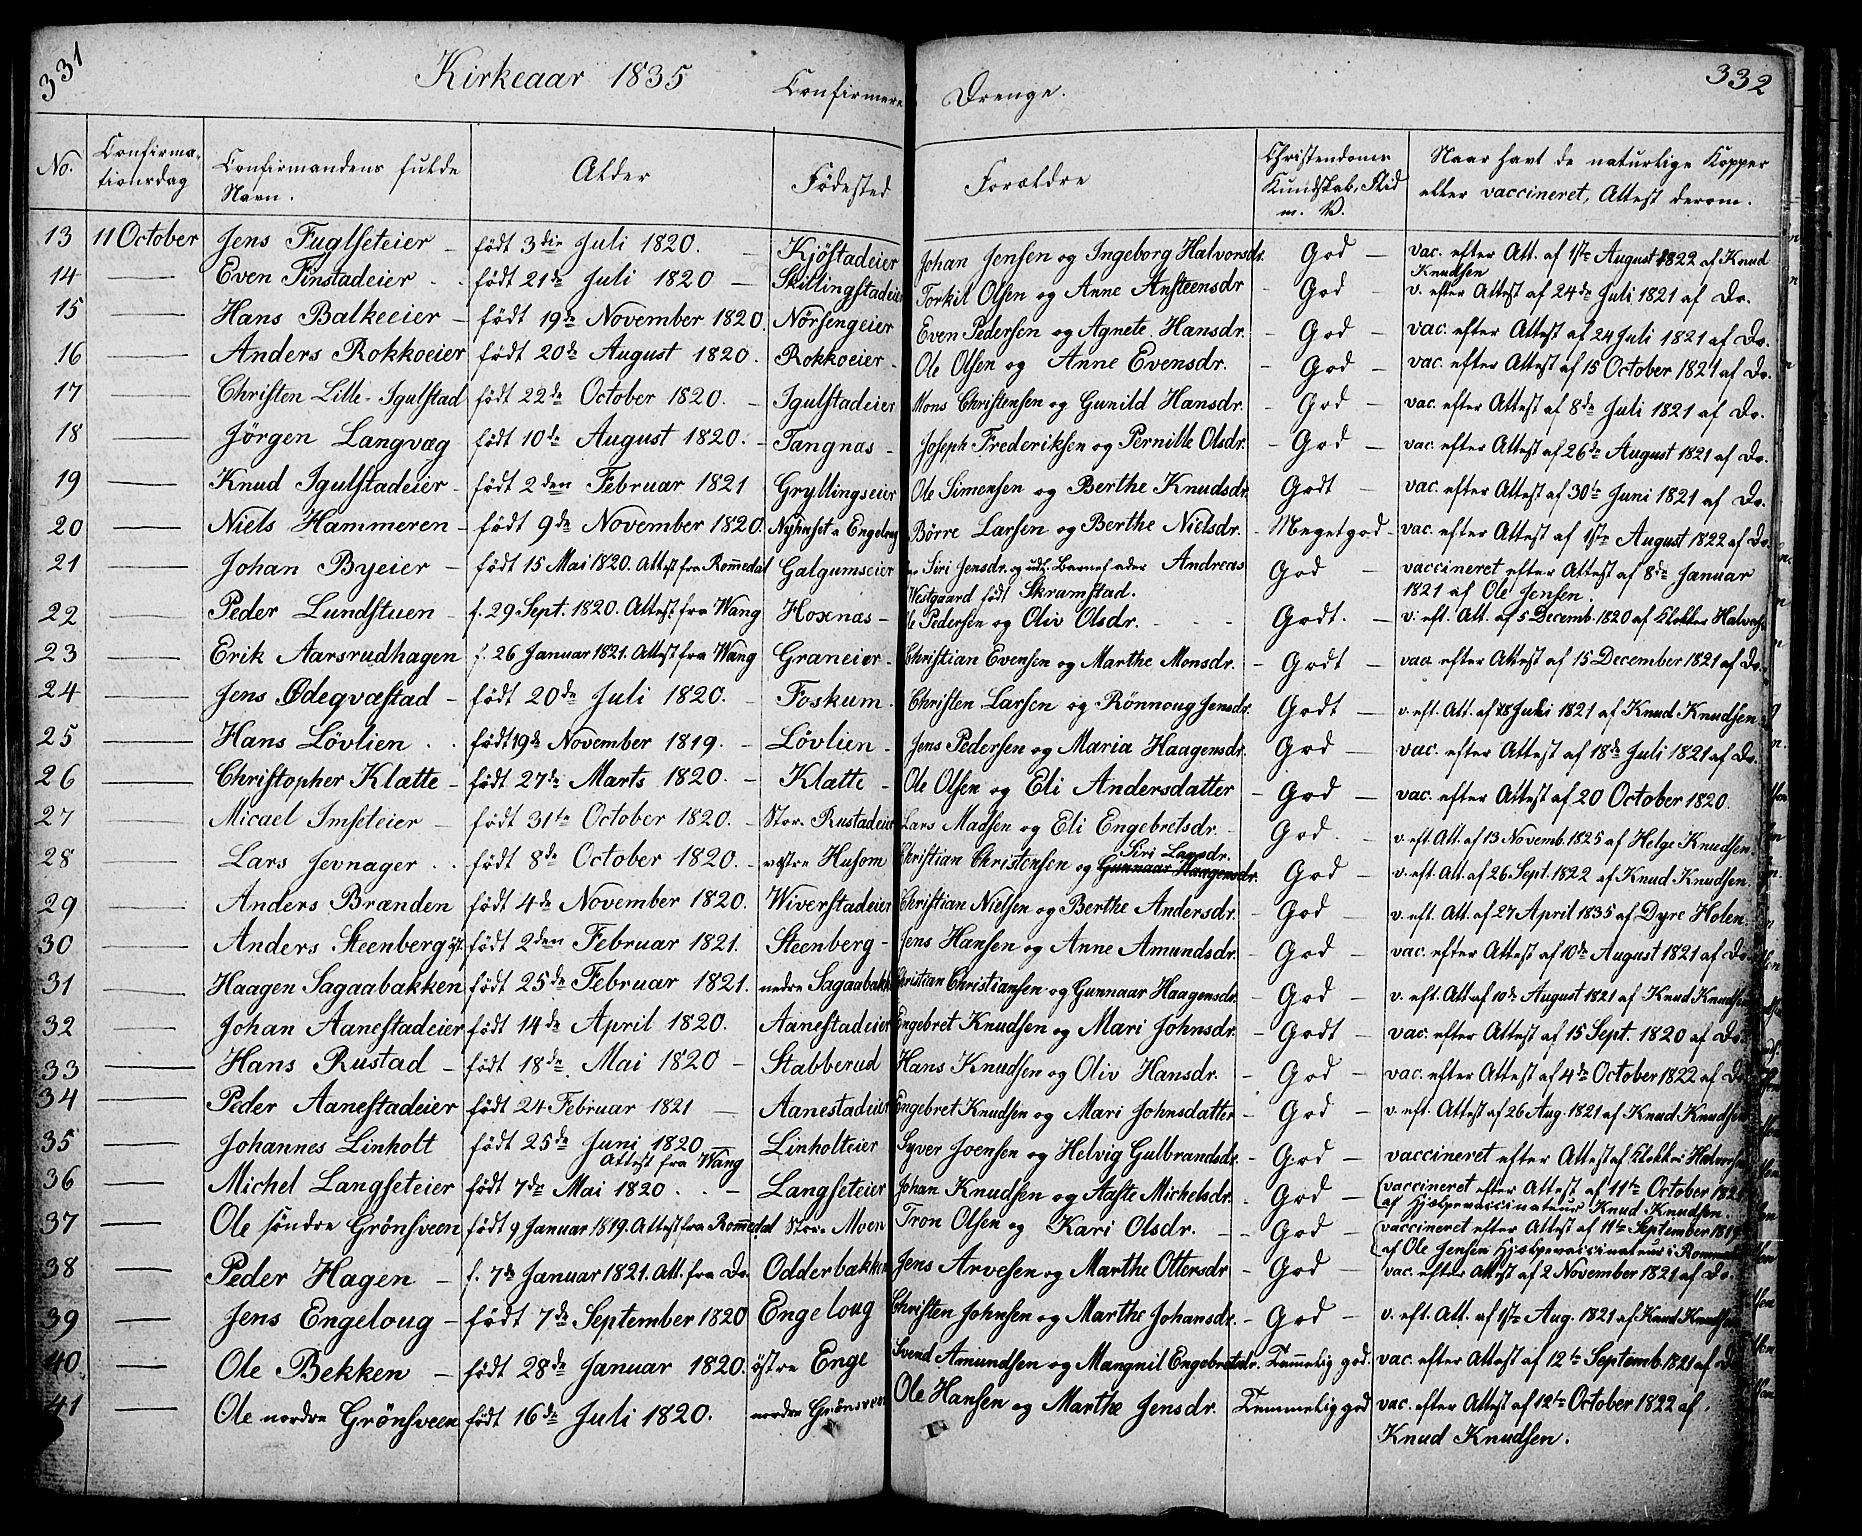 331
Kirkeaar 1835
Confirmere
Drenge.
332
No. Confirmationsdag Confirmandens fulde Navn. Alder Födested Forældre Christendoms Kundskab, Flid m. V. Naar havt de naturlige Kopper eller vaccineret, Attest derom.
13 11 October Jens Fuglseteier – födt 3die Juli 1820. – Kjöstadeier Johan Jensen og Ingeborg Halvorsdr. God – vac. efter Att. af 1ste August 1822 af Knud Knudsen
14 — Even Finstadeier . . födt 21de Juli 1820 – Skillingstadeier Torkil Olsen og Anne Ansteensdr – God – v. efter Attest af 24de Juli 1821 af Do.
15 — Hans Balkeeier – födt 19de November 1820 Nörsengeier Even Pedersen og Agnete Hansdr. God – vac. efter Attest af 24 Juli 1821 af Do.
16 — Anders Rokkoeier födt 20de August 1820. Rokkoeier – Ole Olsen og Anne Evensdr. – God – vac. efter Attest af 15 October 1821 af Do.
17 — Christen Lille-Igulstad födt 22de October 1820. – Igulstadeier Mons Christensen og Gunild Hansdr. – God – vac. efter Attest af 8de Juli 1821 af Do.
18 — Jörgen Langvæg födt 10de August 1820. – Tangnas – Joseph Frederiksen og Pernille Olsdr. – God – vac. efter Attest af 26de August 1821 af Do.
19 — Knud Igulstadeier – födt 2den Februar 1821 Gryllingseier Ole Simensen og Berthe Knudsdr. Godt – vac. efter Attest af 30te Juni 1821 af Do.
20 — Niels Hammeren – födt 9de November 1820. Nyhuset u Engeloug Börre Larsen og Berthe Nielsdr. – Meget god – vac. efter Attest af 1ste August 1822 af Do.
21 — Johan Byeier – födt 15 Mai 1820. Attest fra Rommedal Galgumseier Siri Jensdr. og udl. Barnefader Andreas Westgaard födt Skramstad. God – vaccineret efter Attest af 8de Januar 1821 af Ole Jensen.
22 — Peder Lundstuen – f. 29 Sept. 1820. Attest fra Wang Hoxnas – Ole Pedersen og Oliv Olsdr. - - - Godt. – v. eft. Att. af 5 Decemb. 1820 af Klokker Halvors.
23 — Erik Aarsrudhagen f. 26 Januar 1821. Attest fra Wang Graneier – Christian Evensen og Marthe Monsdr. – Godt – vaa. efter Attest af 15 December 1821 af Do.
24 — Jens Ödegvæstad – födt 20de Juli 1820. – Foskum. Christen Larsen og Rönnoug Jensdr. Godt – v. eft. Att. af 18 Juli 1821 af Knud Knudsen
25 — Hans Lövlien . . födt 19de November 1819. – Lövlien – Jens Pedersen og Maria Haagensdr. God – vac. efter Attest af 18de Juli 1821 af Do.
26 — Christopher Klatte – födt 27de Marts 1820. – Klatte – Ole Olsen og Eli Andersdatter – God – vac. efter Attest af 20 October 1820.
27 — Micael Imseteier – födt 31te October 1820. – Stor-Rustadeier Lars Madsen og Eli Engebretsdr. – God – v. eft. Att. af 13 Novemb. 1825 af Helge Knudsen
28 — Lars Jevnager . . födt 8de October 1820. – vestre Husom Christian Christensen og Gunnaar Haagensdr. Siri Larsdr. God – v. eft. Att. af 26 Sept. 1822 af Knud Knudsen.
29 — Anders Brænden födt 4de November 1820. Wiverstadeier Christian Nielsen og Berthe Andersdr. – God – v. eft. Att. af 27 April 1835 af Dyre Holen
30 — Anders Steenberg öst. födt 2den Februar 1821. Steenberg – Jens Hansen og Anne Amundsdr. – God – vac. efter Attest af 10de August 1821 af Do.
31 — Haagen Sagaabakken födt 25de Februar 1821. nedre Sagaabakk Christian Christiansen og Gunnaar Haagensdr. – God – v. eft. Att af 10de August 1821 af Knud Knudsen
32 — Johan Aanestadeier födt 14de April 1820. Aanestadeier Engebret Knudsen og Mari Johnsdr. – Godt – vac. efter Attest af 15 Sept. 1820 af Do.
33 — Hans Rustad – födt 18de Mai 1820 – Stabberud Hans Knudsen og Oliv Hansdr. – God – vac. efter Attest af 4de October 1822 af Do.
34 — Peder Aanestadeier födt 24 Februar 1821 – Aanestadeier Engebret Knudsen og Mari Johnsdatter – God – v. eft. Attest af 26 Aug. 1821 af Knud Knudsen
35 — Johannes Linholt födt 25de Juni 1820 Attest fra Wang Linholteier Syver Joensen og Helvig Gulbrandsdr. – God – vaccineret efter Attest af Klokker Halvorsen
36 — Michel Langseteier födt 7de Mai 1820 . . – Langseteier Johan Knudsen og Aaste Michelsdr. – God – vaccineret efter Attest af 11te October 182 af Hjelpevaccinateur Knud Knudsen.
37 — Ole söndre Grönsveen födt 9 Januar 1819. Attest fra Rommedal Store Moen Tron Olsen og Kari Olsdr. – – God – vaccineret efter Attest af 11te September 1819 af Ole Jensen Hjelpevaccinateur i Rommedal
38 — Peder Hagen – f. 7de Januar 1821. Att. fra Do. Odderbakken Jens Arvesen og Marthe Ottersdr – God – vac. efter Attest af 2 November 1821 af Do.
39 — Jens Engeloug – födt 7de September 1820 Engeloug Christen Johnsen og Marthe Johansdr. – God – v. eft. Att. af 1ste Aug. 1821 af Knud Knudsen
40 — Ole Bekken – födt 28de Januar 1820. östre Enge Svend Amundsen og Mangnil Engebretsdr. Temmelig god. vac. efter Attest af 12te Septemb. 1821 af Do
41 — Ole nordre Grönsveen födt 16de Juli 1820. nordre Grönsveen Ole Hansen og Marthe Jensdr. Temmelig god vac. efter Attest af 12te October 1822 af Knud Knudsen.